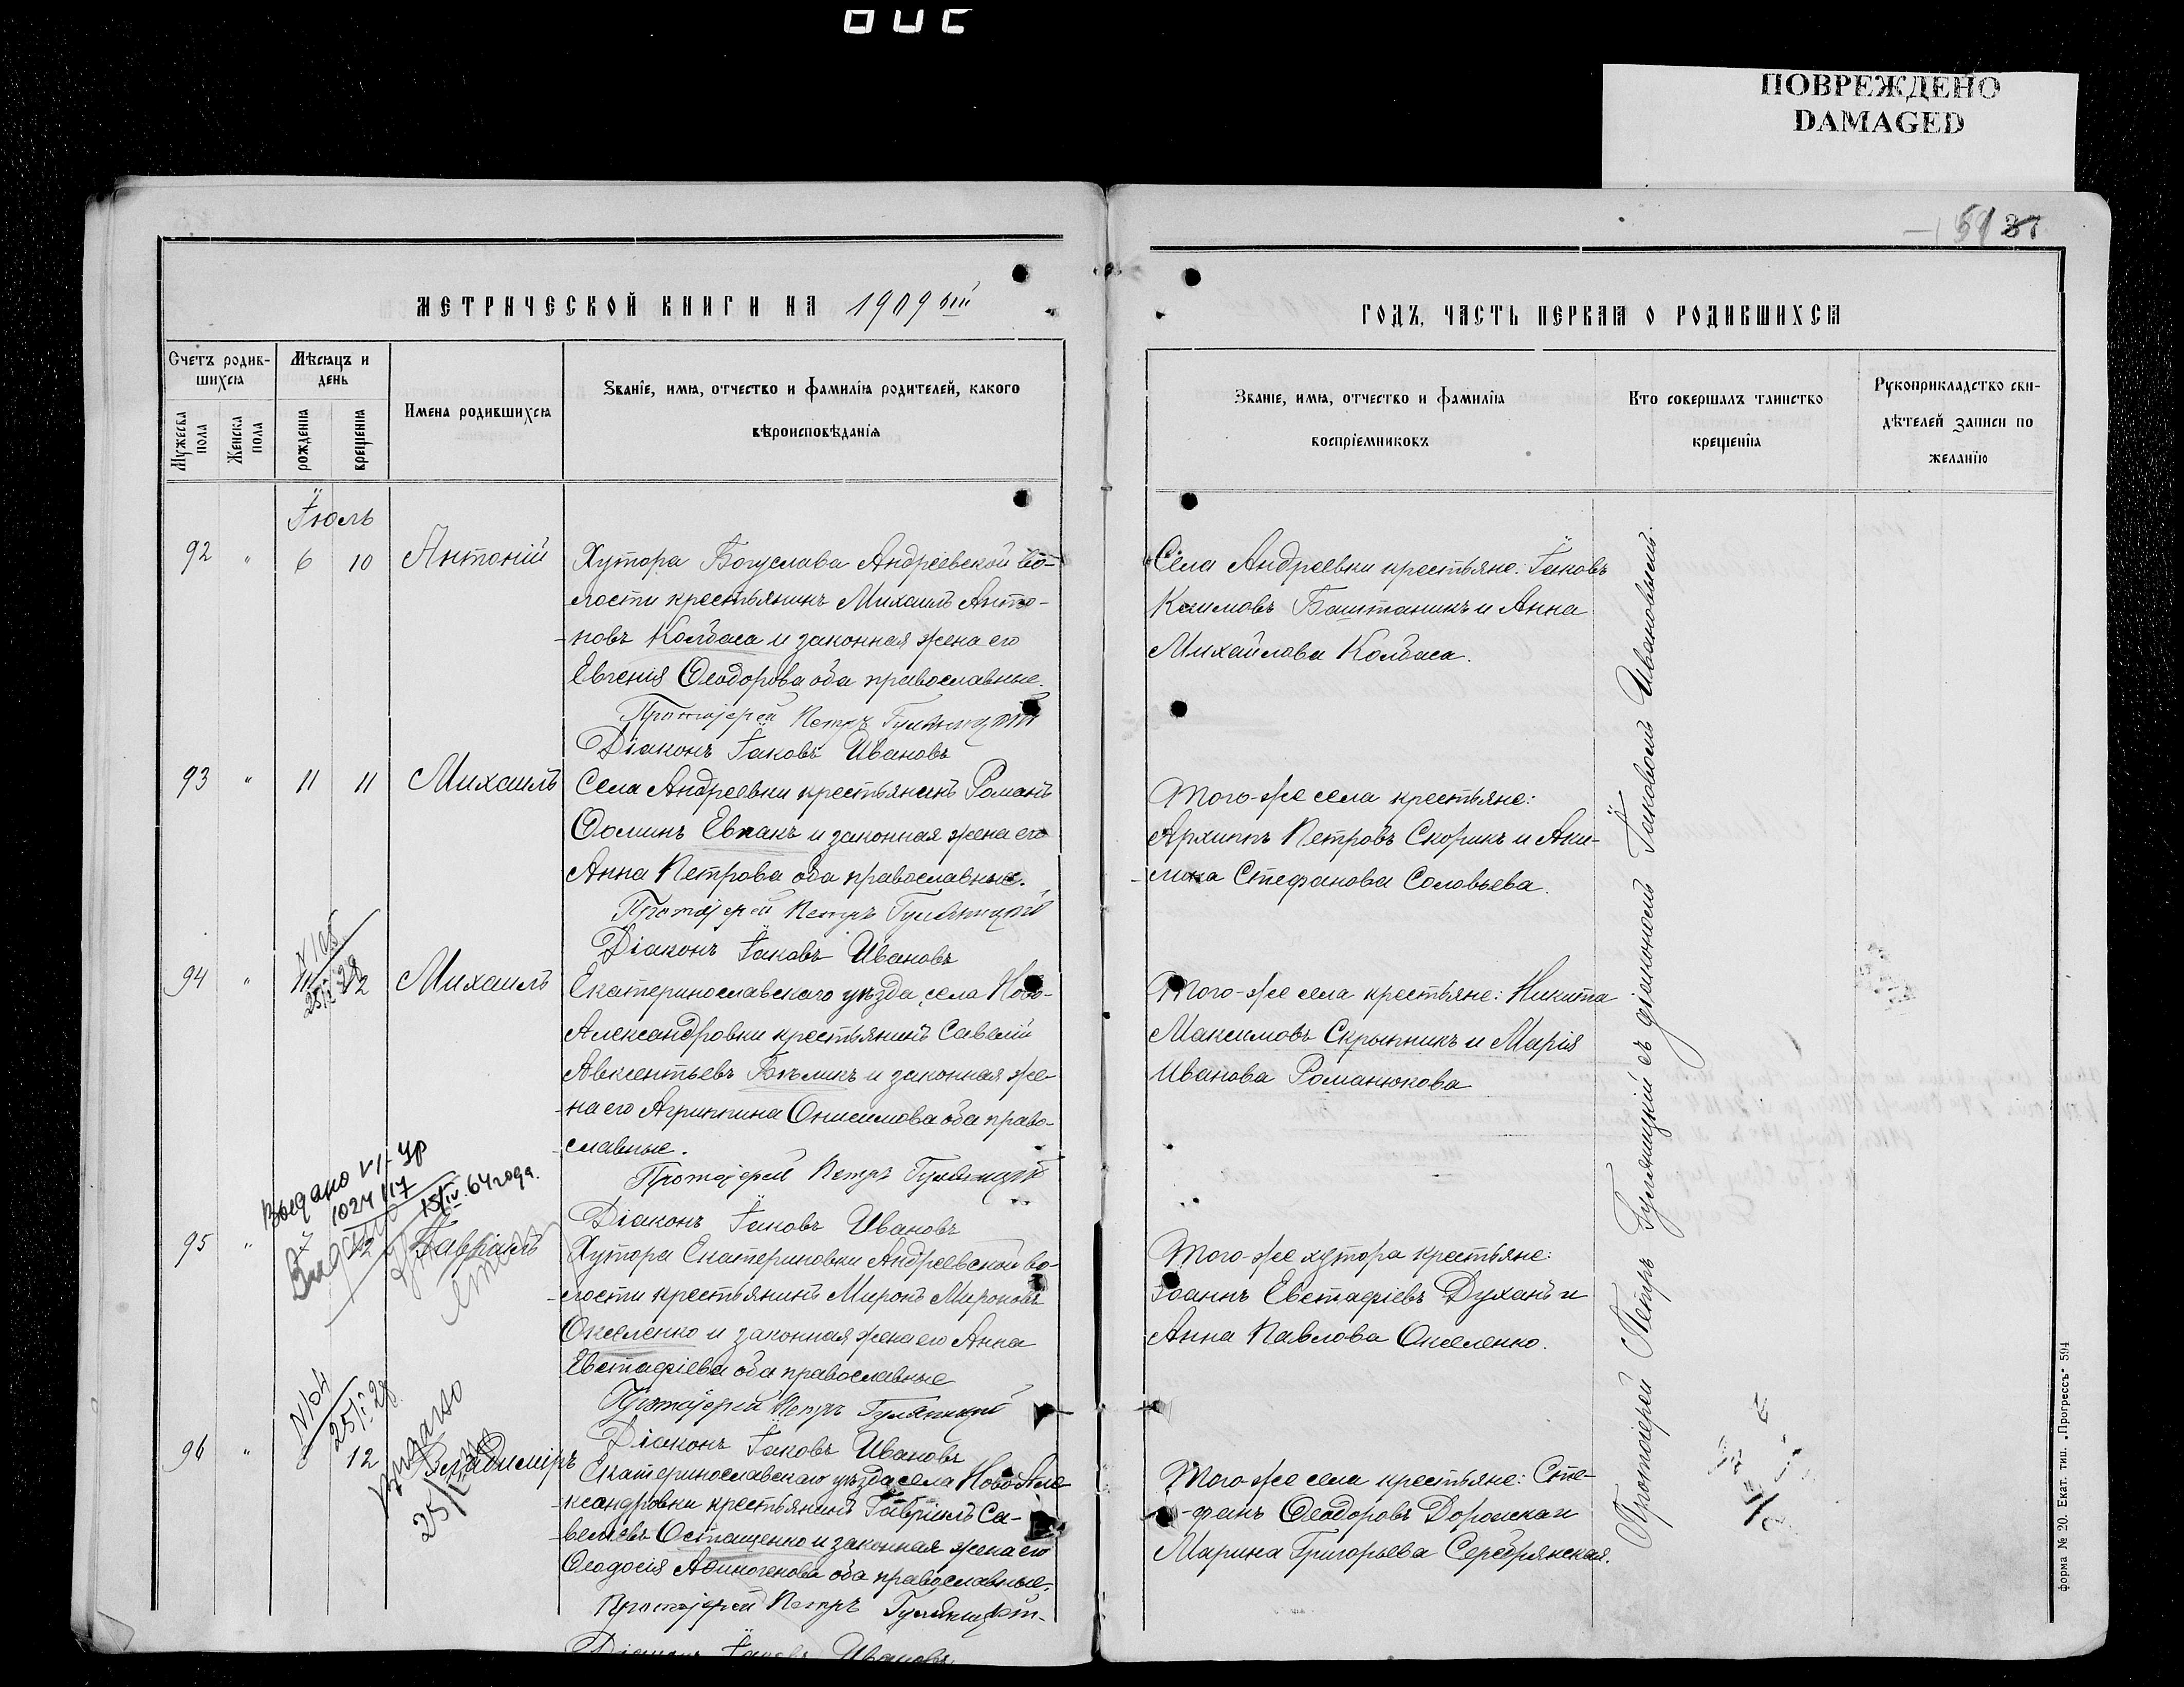 ПОВРЕЖДЕНО
DAMAGED
51 37
МЕТРИЧЕСКОЙ КНИГИ НА 1909 ый
Счетъ родив-
шихся
Мѣсяцъ и
день
Мужеска
пола
Женска
пола
рожденія
крещенія
Имена родившихся
Званіе, имя, отчество и фамилія родителей, какого
вѣроисповѣданія
Іюль
92 " 6 10 Антоній
Хутора Богуслава Андреевской во-
лости крестьянинъ Михаилъ Анто-
-новъ Колбаса и законная жена его
Евгенія Ѳеодорова оба православные.
Протоіерей Петръ Гуляницкій
Діаконъ Іаковъ Ивановъ
93 " 11 11 Михаилъ
Села Андреевки крестьянинъ Романъ
Ѳоминъ Евпакъ и законная жена его
Анна Петрова оба православные.
Протоіерей Петръ Гуляницкій
Діаконъ Іаковъ Ивановъ
94 " 11 12 Михаилъ
25/I 28
Екатеринославскаго уѣзда, села Ново-
Александровки крестьянинъ Савелій
Авксентьевъ Бѣликъ и законная же-
-на его Агриппина Онисимова оба право-
славные.
Протоіерей Петръ Гуляницкій
Діаконъ Іаковъ Ивановъ
Выдано VI-УР
1024117
15/IV 64 года.
95 " 7 12 Гавріилъ
Видано
Хутора Екатериновки Андреевской во-
-лости крестьянинъ Миронъ Мироновъ
Окселенко и законная жена его Анна
Евстафіева оба православные
Протоіерей Петръ Гуляницкій
Діаконъ Іаковъ Ивановъ
N104
25/I 28
96 " 8 12 Владиміръ
Видано
Екатеринославскаго уѣзда села Ново-Але-
-ксандровки крестьянинъ Гавріилъ Са-
-веліевъ Остащенко и законная жена его
Ѳеодосія Аѳиногенова оба православные.
Протоіерей Петръ Гуляницкій
Діаконъ Іаковъ Ивановъ.
ГОДЪ, ЧАСТЬ ПЕРВАЯ О РОДИВШИХСЯ
Званіе, имя, отчество и фамилія
воспріемниковъ
Кто совершалъ таинство
крещенія
Рукоприкладство сви-
дѣтелей записи по
желанію
Села Андреевки крестьяне: Іаковъ
Климовъ Баштаникъ и Анна
Михайлова Колбаса.
Того-же села крестьяне:
Архиппъ Петровъ Скорикъ и Аки-
-лина Стефанова Соловьева.
Того-же села крестьяне: Никита
Максимовъ Скрынникъ и Марія
Иванова Романюкова
Того-же хутора крестьяне:
Іоаннъ Евстафіевъ Духанъ и
Анна Павлова Окселенко.
Того-же села крестьяне: Сте-
-фанъ Ѳеодоровъ Доронска и
Марина Григорьева Серебрянская.
Протоіерей Петръ Гуляницкій съ діакономъ Іаковомъ Ивановымъ.
форма № 20. Екат. тип. „Прогрессъ" 594